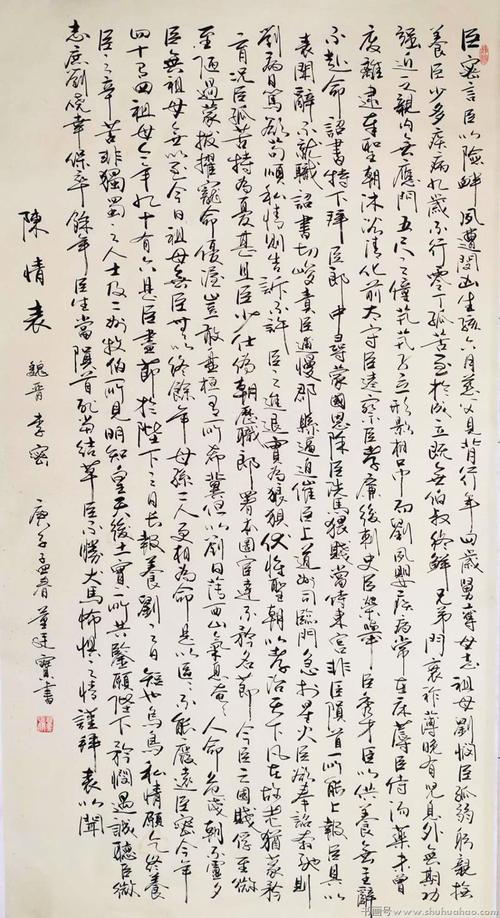 臣密言臣以險釁夙遭閔凶生孩六月慈父見背行年四歲舅奪母志祖母劉憫臣孤弱躬親撫
養臣少多疾病九歲不行零丁孤苦至於成立既無伯叔終鮮兄弟門衰祚薄晚有兒息外無期功
強近之親內無應門五尺之僮煢煢孑立形影相吊而劉夙嬰疾病常在床蓐臣侍湯藥未曾
廢離逮奉聖朝沐浴清化前太守臣逵察臣孝廉後刺史臣榮舉臣秀才臣以供養無主辭
不赴命詔書特下拜臣郎中尋蒙國恩除臣洗馬猥賤當侍東宮非臣隕首所能上報臣具以
表聞辭不就職詔書切峻責臣逋慢郡縣逼迫催臣上道州司臨門急於星火臣欲奉詔奔馳則
劉病日篤欲苟順私情則告訴不許臣之進退實為狼狽伏惟聖朝以孝治天下凡在故老猶蒙矜
育況臣孤苦特為尤甚且臣少仕偽朝歷職郎署本圖宦達不矜名節今臣亡國賤俘至微
至陋過蒙拔擢寵命優渥豈敢盤桓有所希冀但以劉日薄西山氣息奄奄人命危淺朝不慮夕
臣無祖母無以至今日祖母無臣無以終餘年母孫二人更相為命是以區區不能廢遠臣密今年
四十有四祖母今年九十有六是臣盡節於陛下之日長報養劉之日短也烏鳥私情願乞終養
臣之辛苦非獨蜀之人士及二州牧伯所見明知皇天後土實所共鑒願陛下矜憫愚誠聽臣微
志庶劉僥幸保卒餘年臣生當隕首死當結草臣不勝犬馬怖懼之情謹拜表以聞
陳情表 魏晉 李密 庚子孟春 董廷寶書
书画号 www.shuhuahao.com